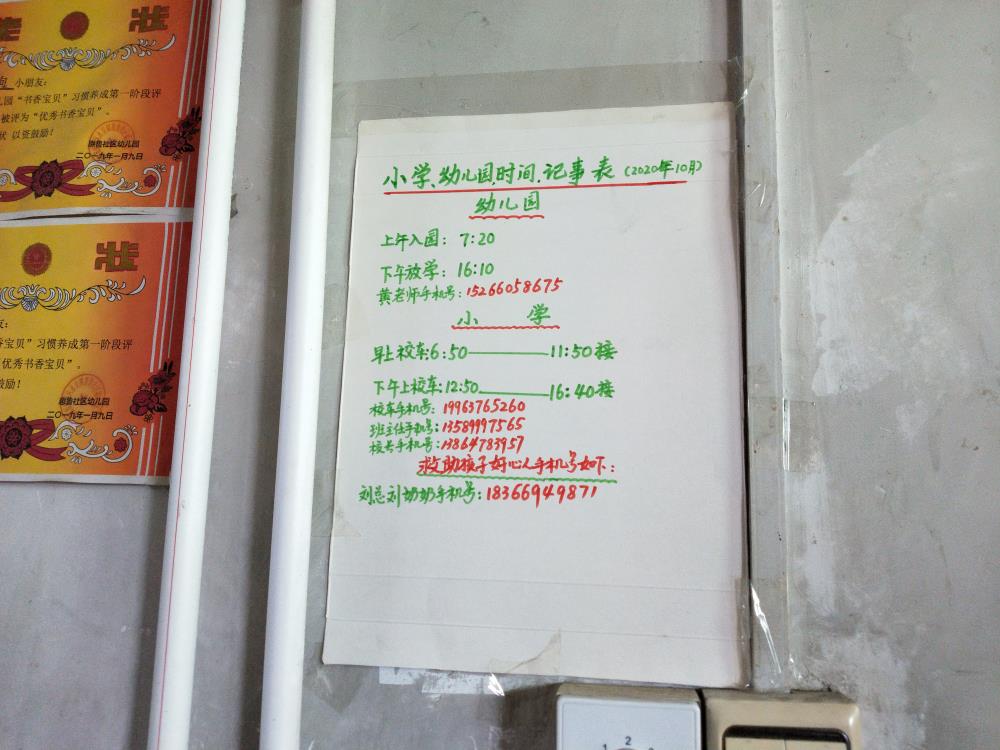 状
小朋友:
儿园“书香宝贝”习惯养成第一阶段评
被评为“优秀书香宝贝”。
状 以资鼓励!
社区幼儿园
二〇一九年一月九日
状
友:
香宝贝”习惯养成第一阶段评
“优秀书香宝贝”。
鼓励!
社区幼儿园
二〇一九年一月九日
小学、幼儿园,时间、记事表(2020年10月)
幼儿园
上午入园:7:20
下午放学:16:10
黄老师手机号:15266058675
小 学
早上校车6:50——11:50接
下午上校车:12:50——16:40接
校车手机号:19963765260
班主任手机号:13589997565
校长手机号:13864783957
救助孩子好心人手机号如下:
刘总刘奶奶手机号:18366949871
1 2